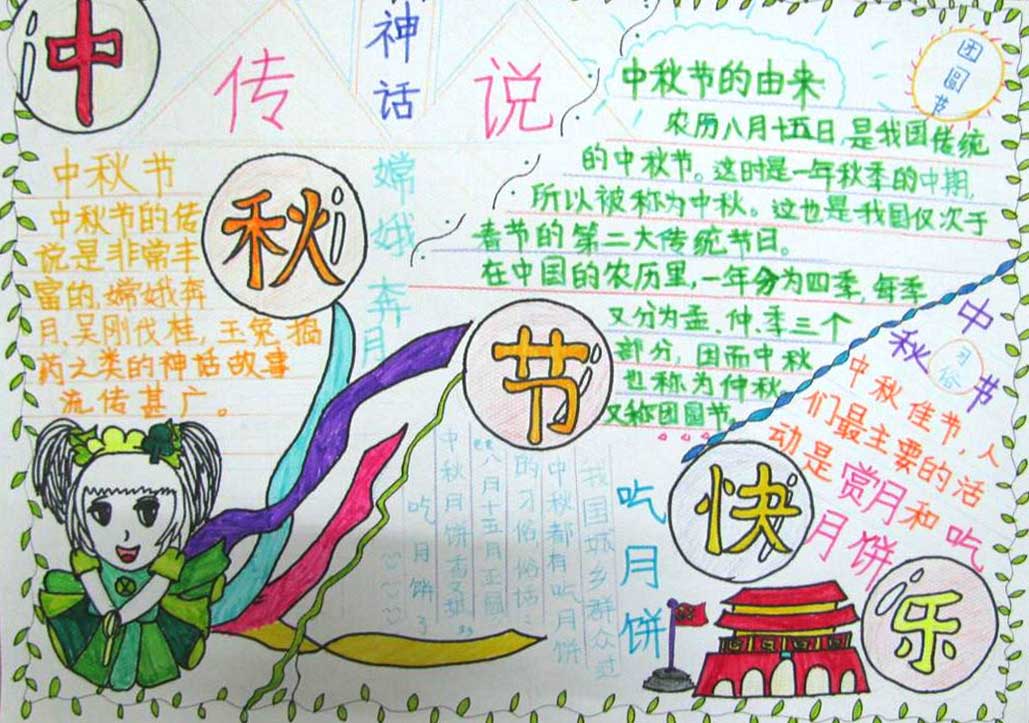 中
秋
节
快
乐
神话
传说
嫦娥奔月
中秋节
中秋节的传
说是非常丰
富的,嫦娥奔
月,吴刚伐桂,玉兔捣
药之类的神话故事
流传甚广。
团圆节
中秋节的由来
农历八月十五日,是我国传统
的中秋节。这时是一年秋季的中期,
所以被称为中秋。这也是我国仅次于
春节的第二大传统节日。
在中国的农历里,一年分为四季,每季
又分为孟、仲、季三个
部分,因而中秋
也称为仲秋
又称团圆节。
中秋节
习俗
中秋佳节,人
们最主要的活
动是赏月和吃
月饼
吃月饼
我国城乡群众过
中秋都有吃月饼
的习俗,俗话:
“八月十五月正圆
中秋月饼香又甜”
吃月饼